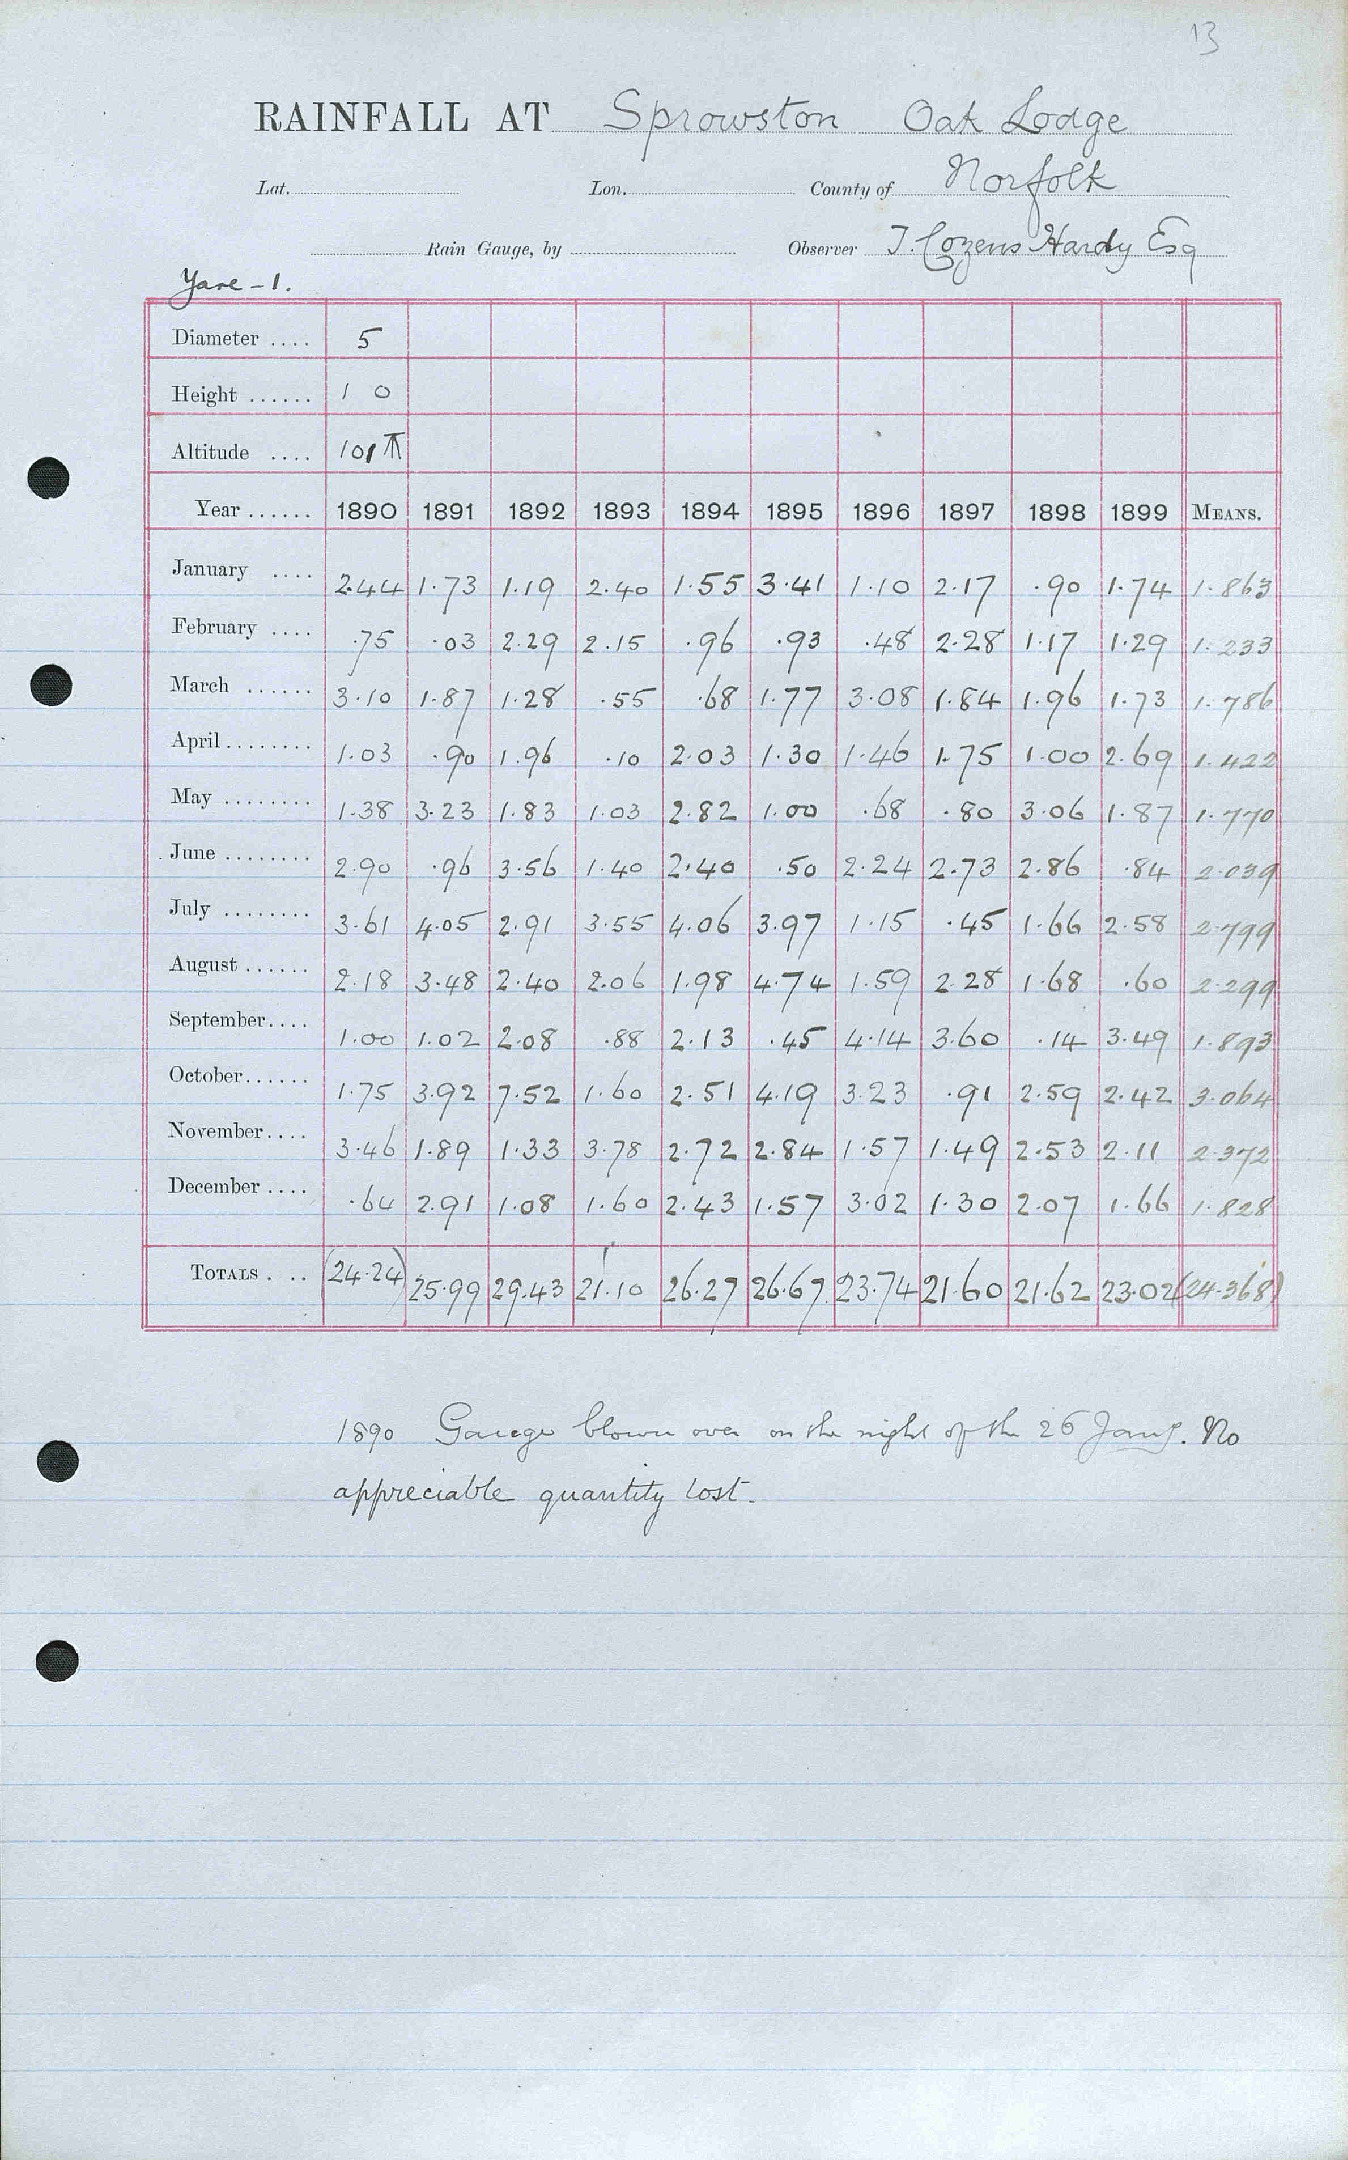 13
RAINFALL AT Sprowston Oak Lodge
Lat. Lon. County of Norfolk
Rain Gauge, by Observer J. Cozens Hardy Esq
Yare - 1.
Diameter .... 5
Height ...... 1 0
Altitude .... 101 T
Year ...... 1890 1891 1892 1893 1894 1895 1896 1897 1898 1899 MEANS.
January .... 2.44 1.73 1.19 2.40 1.55 3.41 1.10 2.17 .90 1.74 1.863
February .... .75 .03 2.29 2.15 .96 .93 .48 2.28 1.17 1.29 1.233
March ...... 3.10 1.87 1.28 .55 .68 1.77 3.08 1.84 1.96 1.73 1.786
April ........ 1.03 .90 1.96 .10 2.03 1.30 1.46 1.75 1.00 2.69 1.422
May ........ 1.38 3.23 1.83 1.03 2.82 1.00 .68 .80 3.06 1.87 1.770
June ........ 2.90 .96 3.56 1.40 2.40 .50 2.24 2.73 2.86 .84 2.039
July ........ 3.61 4.05 2.91 3.55 4.06 3.97 1.15 .45 1.66 2.58 2.799
August ...... 2.18 3.48 2.40 2.06 1.98 4.74 1.59 2.28 1.68 .60 2.299
September .... 1.00 1.02 2.08 .88 2.13 .45 4.14 3.60 .14 3.49 1.893
October ...... 1.75 3.92 7.52 1.60 2.51 4.19 3.23 .91 2.59 2.42 3.064
November .... 3.46 1.89 1.33 3.78 2.72 2.84 1.57 1.49 2.53 2.11 2.372
December .... .64 2.91 1.08 1.60 2.43 1.57 3.02 1.30 2.07 1.66 1.828
TOTALS . .. (24.24) 25.99 29.43 21.10 26.27 26.67 23.74 21.60 21.62 23.02 (24.368)
1890 Gauge blown over on the night of the 26 Jany. No
appreciable quantity lost.